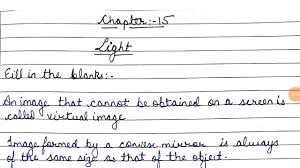 Chapter:-15
Light
Fill in the blanks:-
An image that cannot be obtained on a screen is
called virtual image
Image formed by a convex mirror is always
of the same size as that of the object.